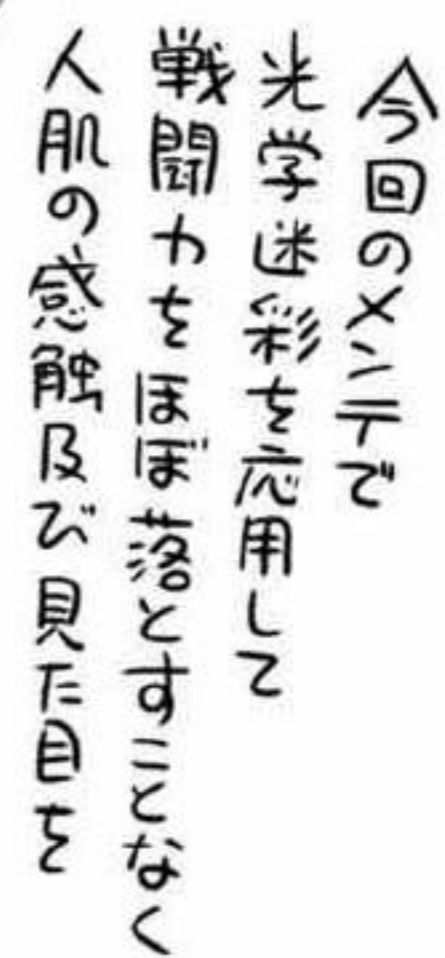 今回のメンテで
光学迷彩を応用して
戦闘力をほぼ落とすことなく
人肌の感触及び見た目を